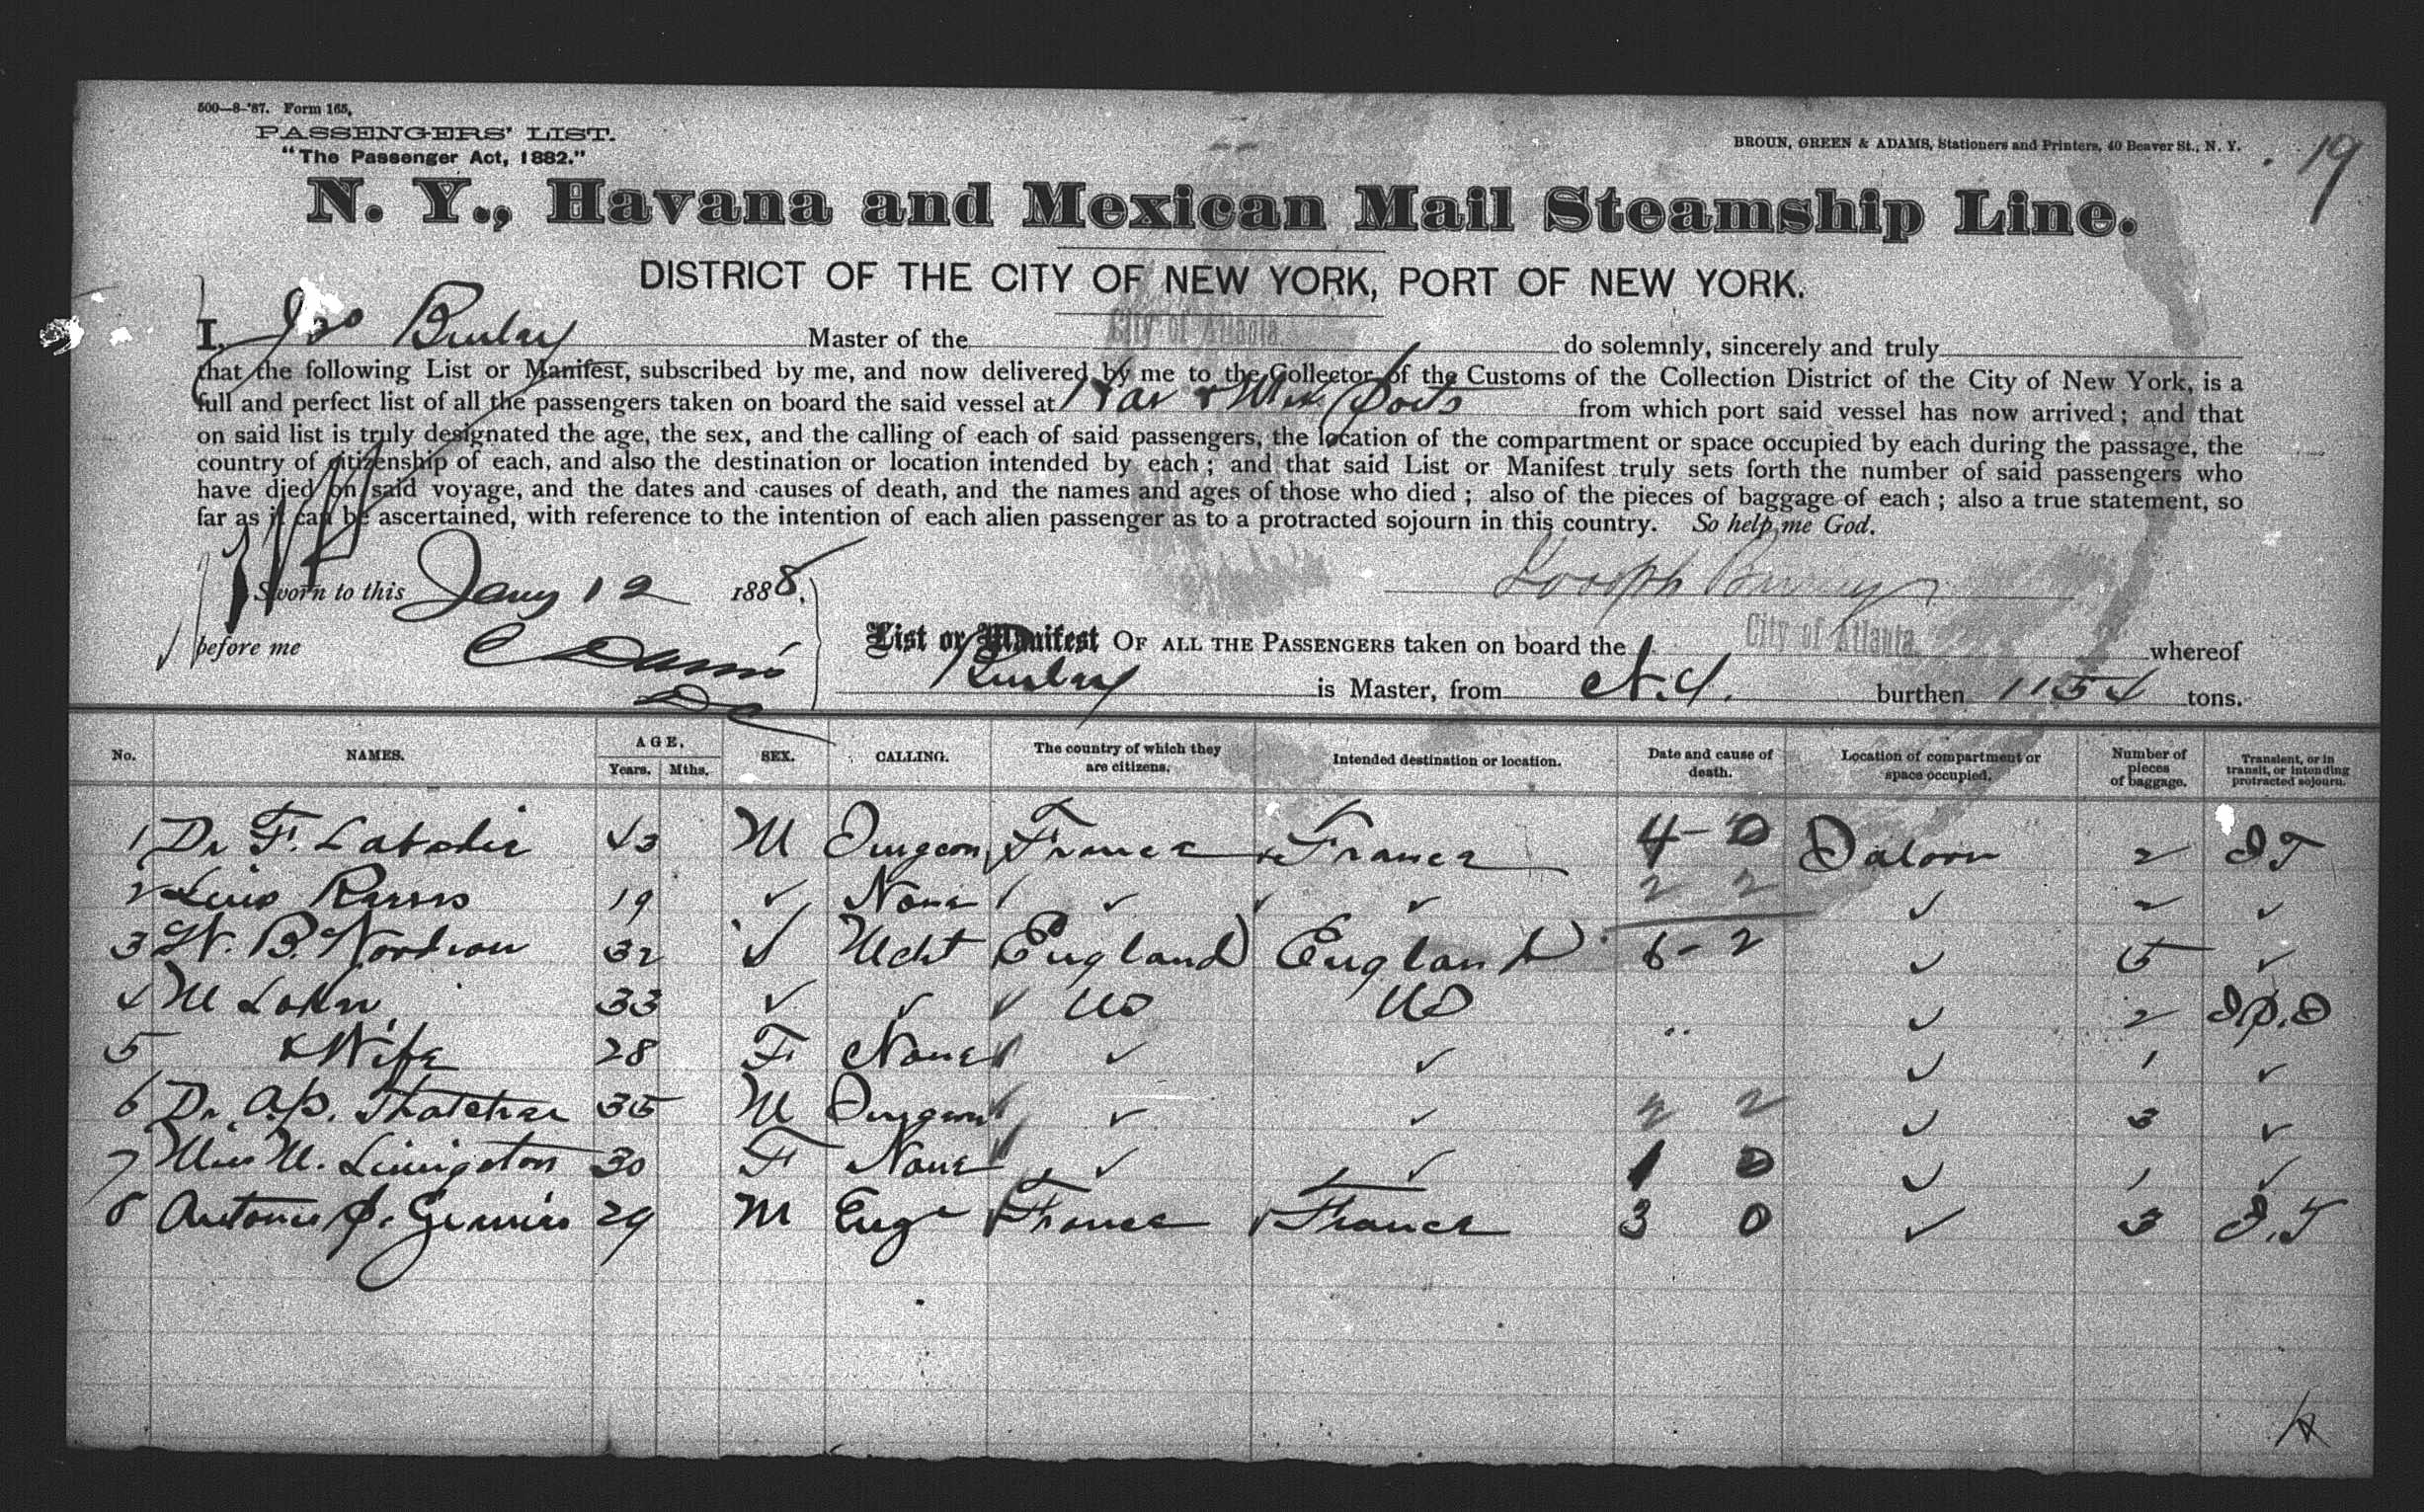 500—8-'87. Form 165,
PASSENGERS' LIST.
"The Passenger Act, 1882."
BROUN, GREEN & ADAMS, Stationers and Printers, 40 Beaver St., N. Y.
19
N. Y., Havana and Mexican Mail Steamship Line.
DISTRICT OF THE CITY OF NEW YORK, PORT OF NEW YORK.
I, Jos Burley Master of the City of Atlanta do solemnly, sincerely and truly
that the following List or Manifest, subscribed by me, and now delivered by me to the Collector of the Customs of the Collection District of the City of New York, is a
full and perfect list of all the passengers taken on board the said vessel at Hav & Mex Ports from which port said vessel has now arrived; and that
on said list is truly designated the age, the sex, and the calling of each of said passengers, the location of the compartment or space occupied by each during the passage, the
country of citizenship of each, and also the destination or location intended by each; and that said List or Manifest truly sets forth the number of said passengers who
have died on said voyage, and the dates and causes of death, and the names and ages of those who died; also of the pieces of baggage of each; also a true statement, so
far as it can be ascertained, with reference to the intention of each alien passenger as to a protracted sojourn in this country. So help me God.
Sworn to this Jany 12 1888,
Joseph Burley
before me
List or Manifest OF ALL THE PASSENGERS taken on board the City of Atlanta whereof
Burley is Master, from N.Y. burthen 1154 tons.
No. NAMES. AGE. Years. Mths. SEX. CALLING. The country of which they are citizens. Intended destination or location. Date and cause of death. Location of compartment or space occupied. Number of pieces of baggage. Transient, or in transit, or intending protracted sojourn.
1 Dr F. Labadie 43 M Surgeon France France 4-0 Saloon 2 I T
2 19 ✓ None ✓ ✓ 2 2 ✓ 2 ✓
3 W. B. 32 ✓ Mcht England England 6-2 ✓ 5 ✓
4 M 33 ✓ ✓ US US ✓ 2
5 & Wife 28 F None ✓ ✓ ✓ 1 ✓
6 Dr. A.P. Thatcher 35 M Surgeon ✓ ✓ 2 2 ✓ 3 ✓
7 Miss M. Livingston 30 F None ✓ ✓ 1 0 ✓ 1 ✓
8 Antonio P. 29 M Engr France France 3 0 ✓ 3 I.T